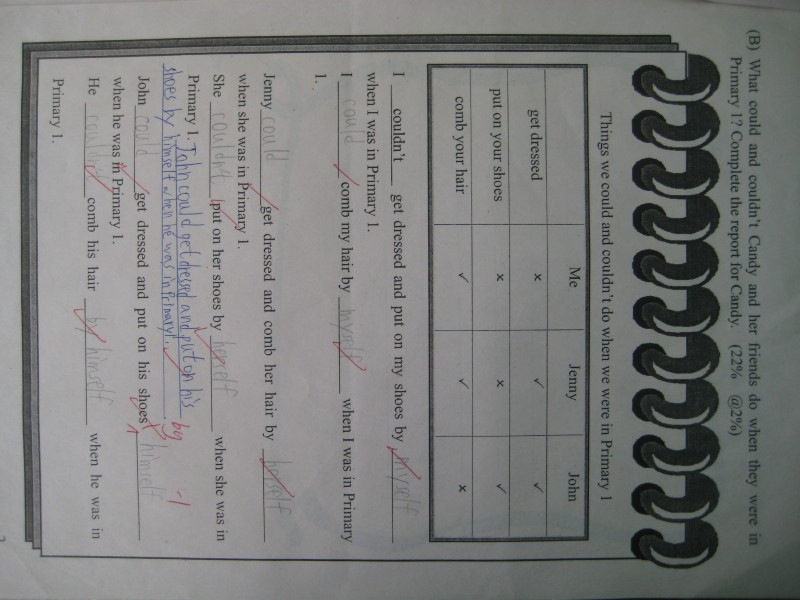 (B) What could and couldn't Candy and her friends do when they were in
Primary 1? Complete the report for Candy. (22% @2%)
Things we could and couldn't do when we were in Primary 1
Me Jenny John
get dressed × ✓ ✓
put on your shoes × × ✓
comb your hair ✓ ✓ ×
I couldn't get dressed and put on my shoes by myself
when I was in Primary 1.
I could comb my hair by myself when I was in Primary
1.
Jenny could get dressed and comb her hair by herself
when she was in Primary 1.
She couldn't put on her shoes by herself when she was in
Primary 1. John could get dressed and put on his
shoes by himself when he was in Primary 1.
by -1
John could get dressed and put on his shoes himself
when he was in Primary 1.
He couldn't comb his hair by himself when he was in
Primary 1.